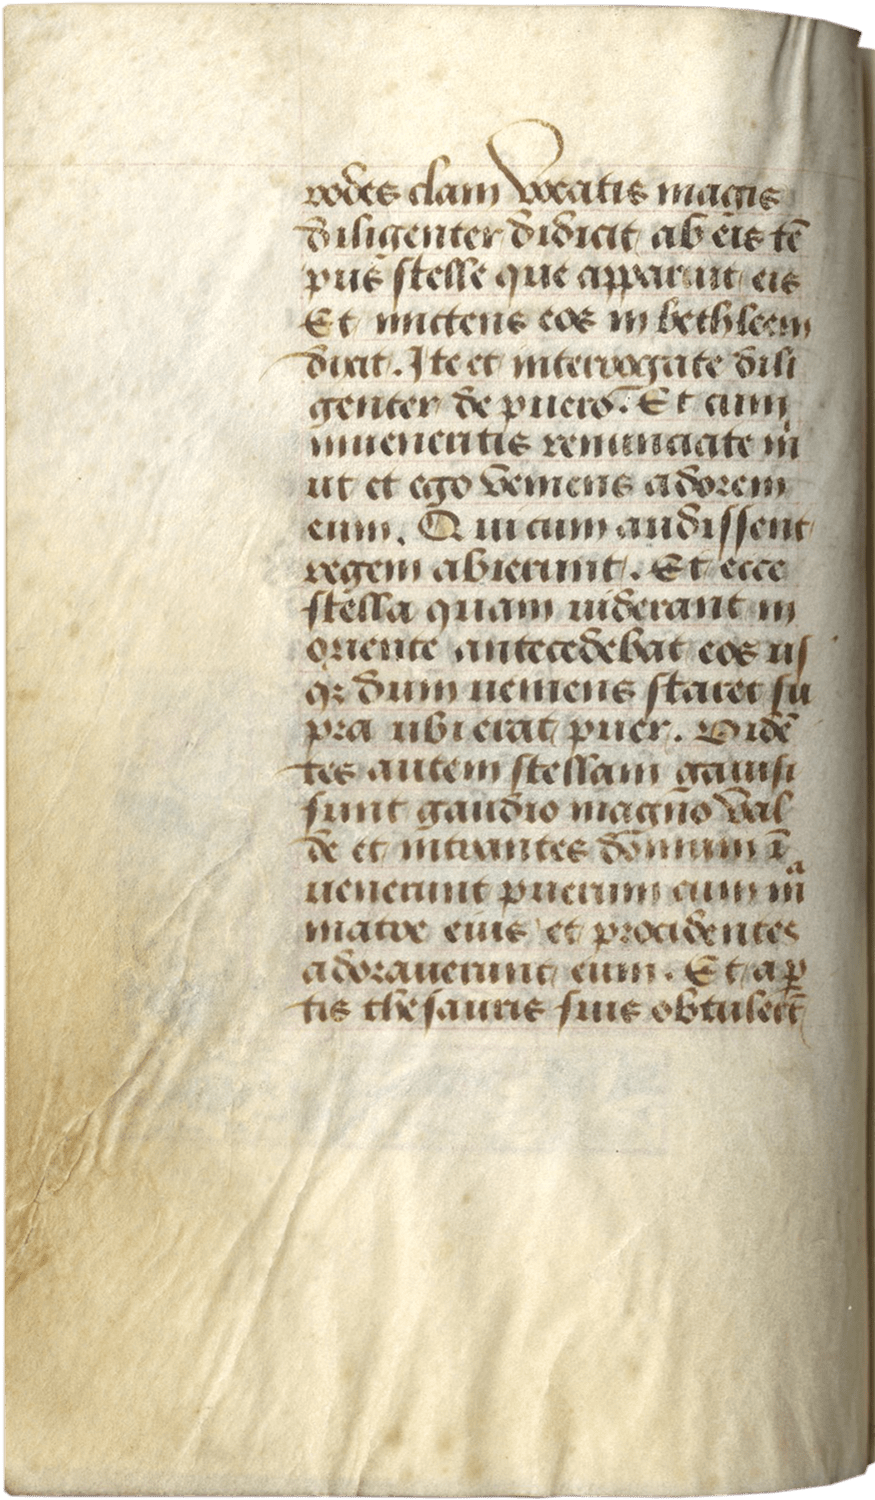 rodes clam vocatis magis
diligenter didicit ab eis tē
pus stelle que apparuit eis
Et mictens eos in bethleem
dixit. Ite et interrogate dili
genter de puero. Et cum
inueneritis renunciate m̃
ut et ego veniens adorem
eum. Qui cum audissent
regem abierunt. Et ecce
stella quam uiderant in
oriente antecedebat eos us
qꝫ dum ueniens staret su
pra ubi erat puer. Vidē
tes autem stellam gauisi
sunt gaudio magno val
de et intrantes domum ī
uenerunt puerum cum m̃a
matre eius et procidentes
adorauerunt eum. Et aꝑ
tis thesauris suis obtulert̄